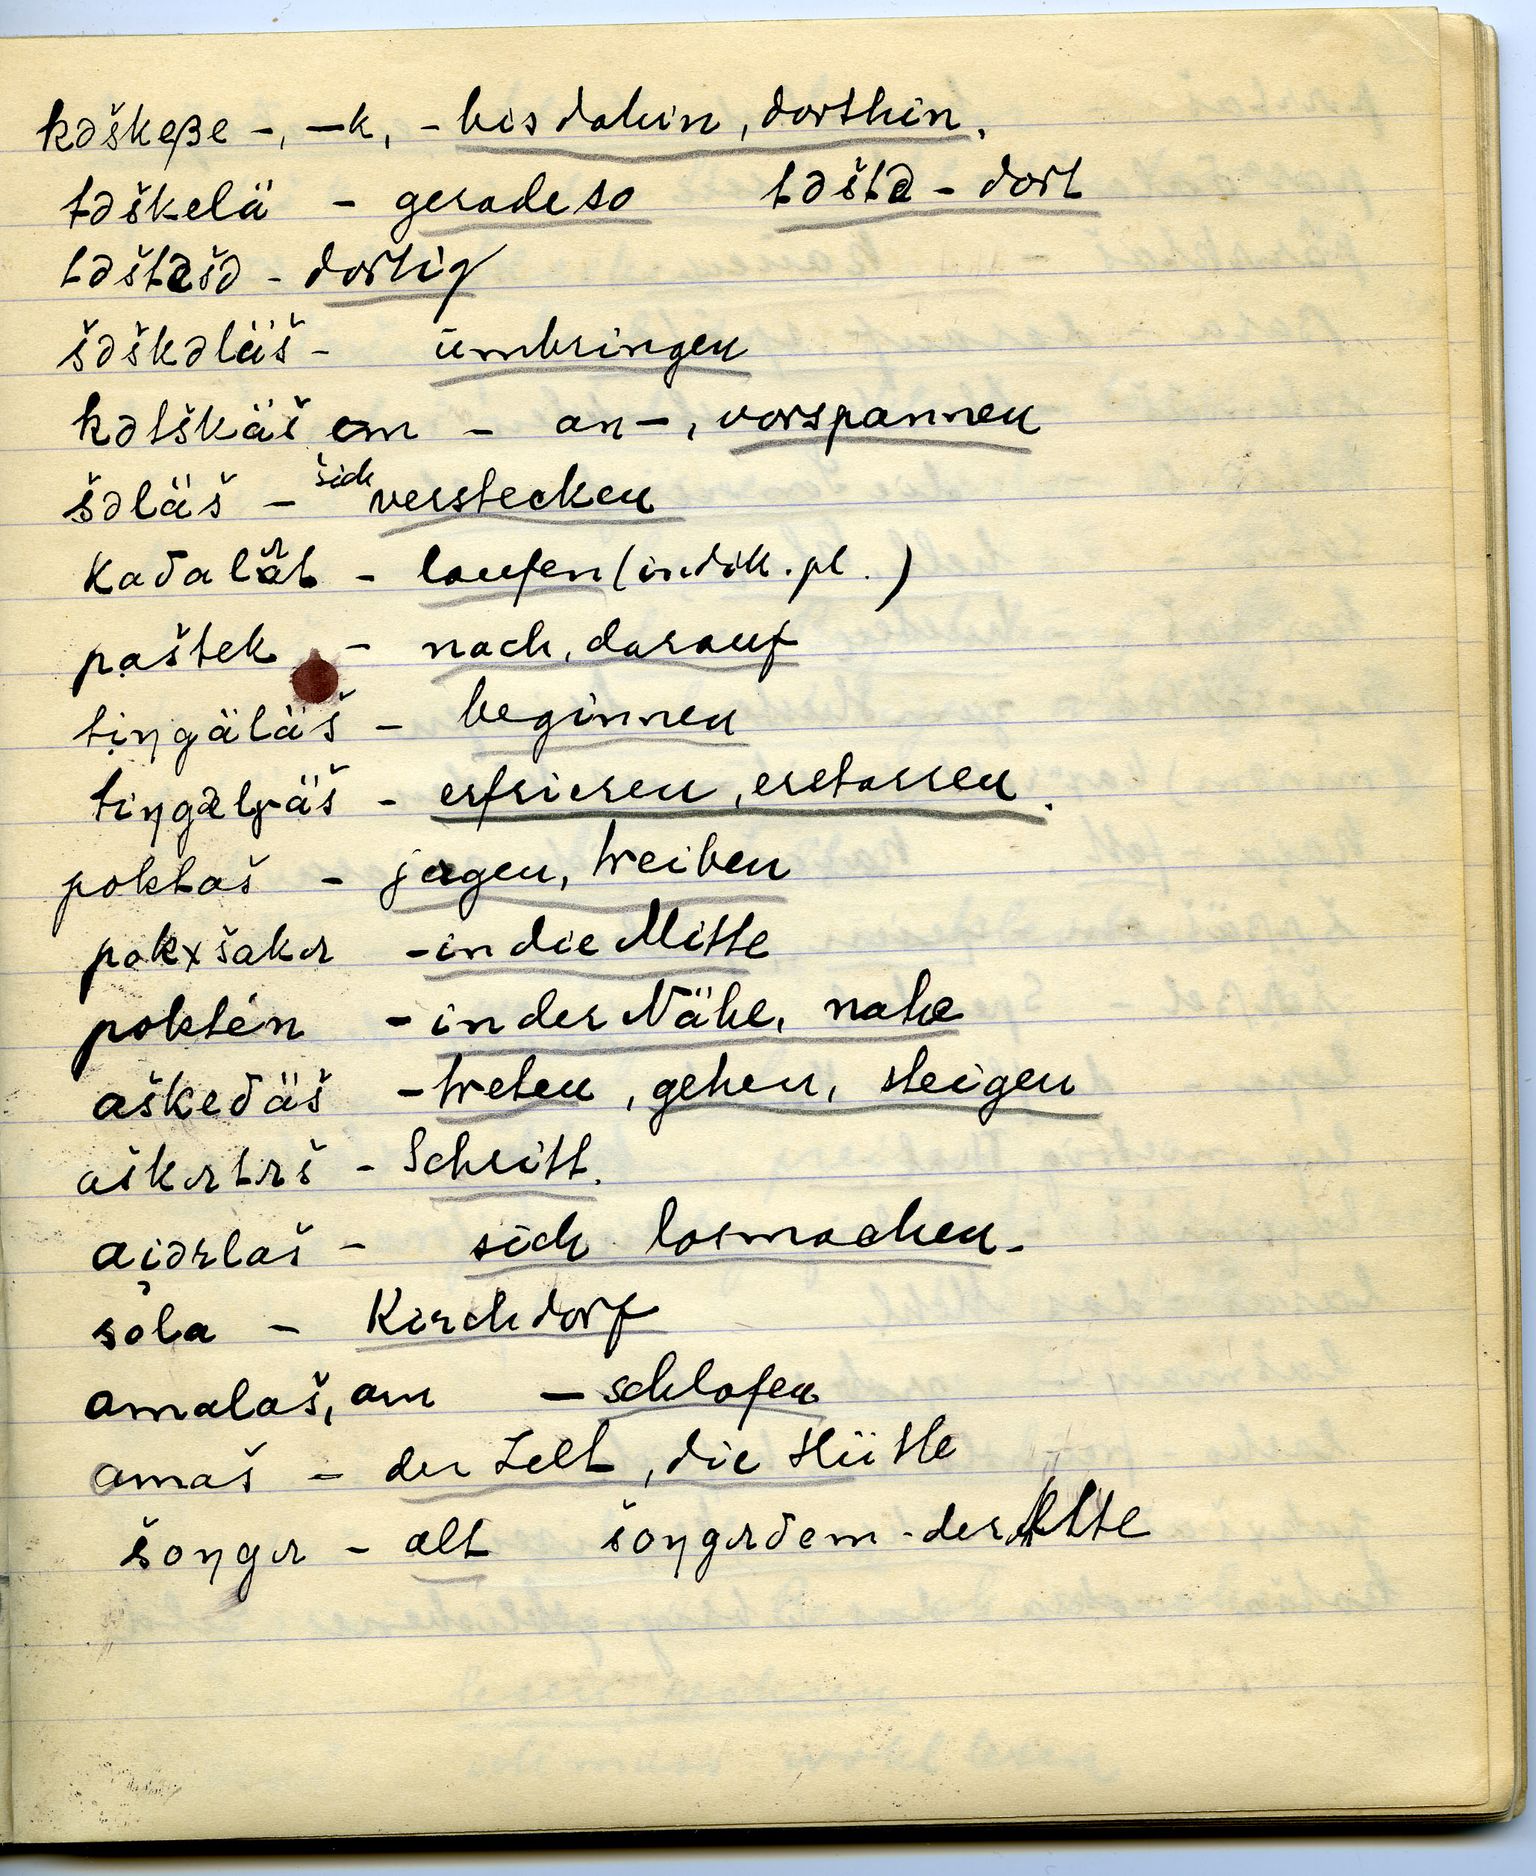 kəškeβe -, -k, - bis dahin, dorthin.
təškelä - geradeso təštə - dort
təštəšə - dortig
šəškəläš - ümbringen
kətškäš em - an-, vorspannen
šəläš - sich verstecken
kaδalət - laufen (indik. pl.)
paštek - nach, darauf
tiŋgäläš - beginnen
tiŋgəlγäš - erfrieren, erstarren.
poktaš - jagen, treiben
pokχšakə - in die Mitte
poktén - in der Nähe, nahe
aškeδäš - treten, gehen, steigen
aškətəš - Schritt.
aiδəlaš - sich losmachen.
sola - Kirchdorf
amalaš, am - schlafen
omaš - der Zelt, die Hütte
šoŋgə - alt šoŋgəδem - der Alte